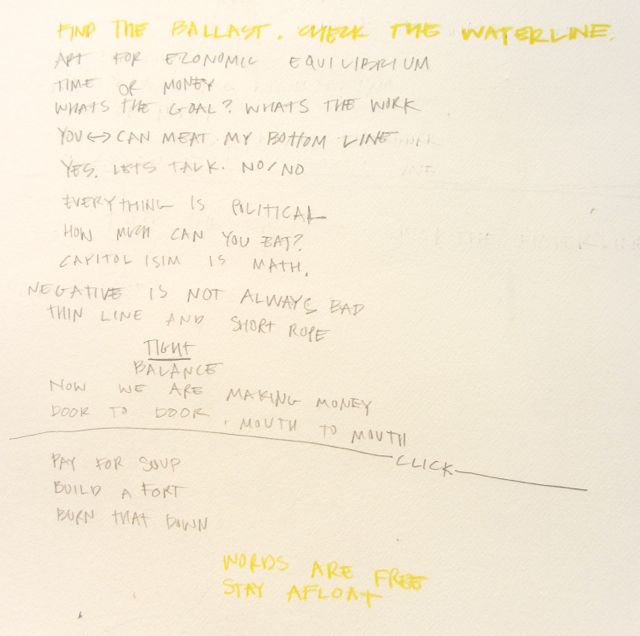 FIND THE BALLAST. CHECK THE WATERLINE.
ART FOR EZONOMIC EQUILIBRIUM
TIME OR MONEY
WHATS THE GOAL? WHATS THE WORK
YOU <-> CAN MEAT MY BOTTOM LINE
YES. LETS TALK. NO/NO
EVERYTHING IS POLITICAL
HOW MUCH CAN YOU EAT?
CAPITOLISIM IS MATH.
NEGATIVE IS NOT ALWAYS BAD
THIN LINE AND SHORT ROPE
TIGHT
BALANCE
NOW WE ARE MAKING MONEY
DOOR TO DOOR. MOUTH TO MOUTH
CLICK
PAY FOR SOUP
BUILD A FORT
BURN THAT DOWN
WORDS ARE FREE
STAY AFLOAT